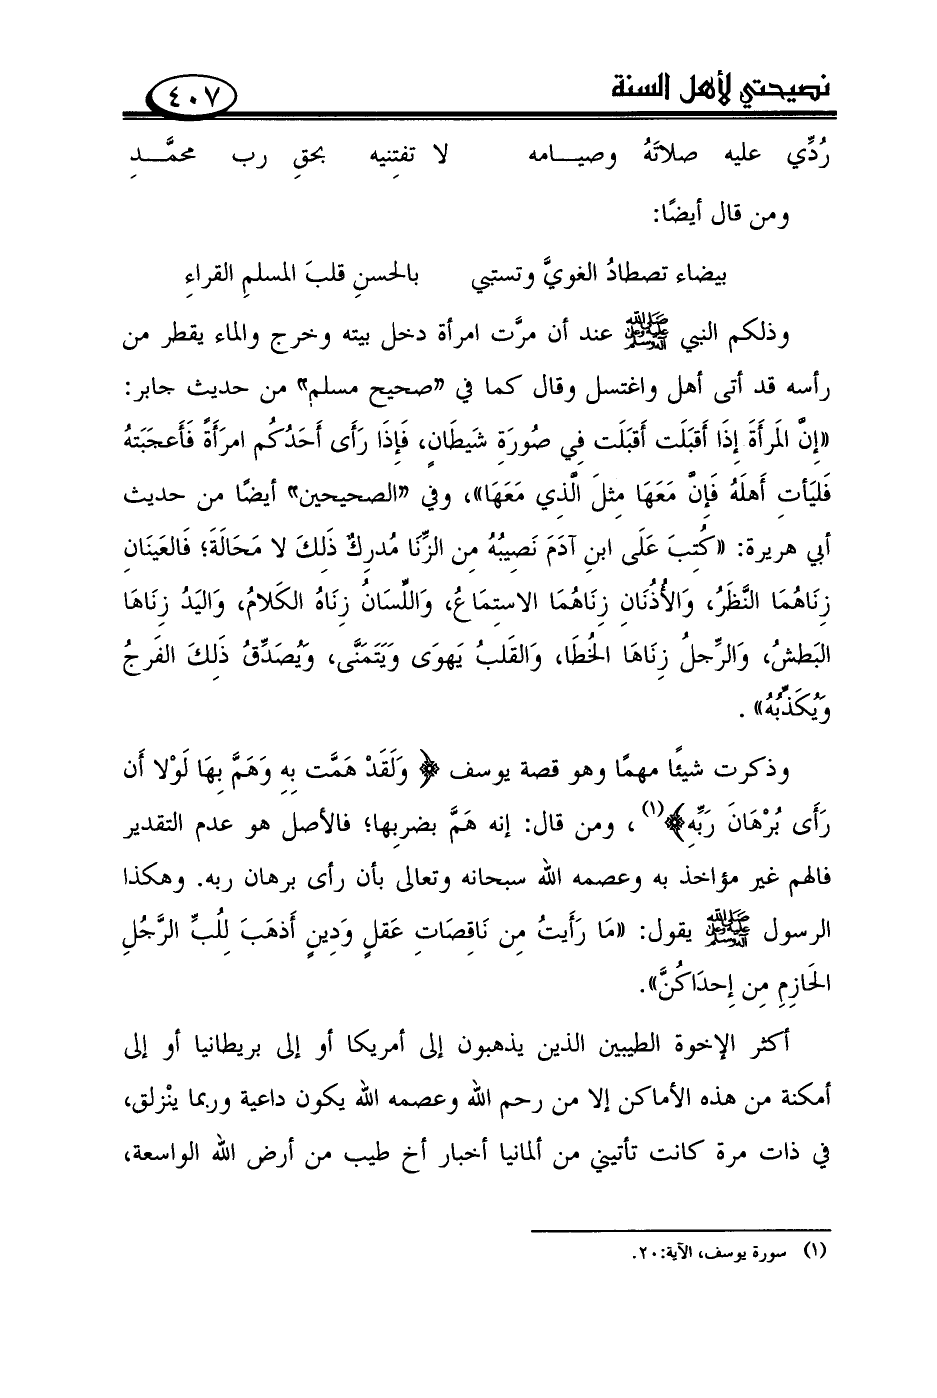 نصيحتي لأهل السنة ٤٠٧
رُدِّي عليه صلاتَهُ وصيـــامه لا تفتِنيه بحقِ رب محمَّـــدِ
ومن قال أيضًا:
بيضاء تصطادُ الغويَّ وتستبي بالحسنِ قلبَ المسلمِ القراءِ
وذلكم النبي ﷺ عند أن مرَّت امرأة دخل بيته وخرج والماء يقطر من
رأسه قد أتى أهل واغتسل وقال كما في «صحيح مسلم» من حديث جابر:
«إنَّ المَرأَةَ إِذَا أَقبَلَت أَقبَلَت فِي صُورَةِ شَيطَانٍ، فَإِذَا رَأَى أَحَدُكُم امرَأَةً فَأَعجَبَتهُ
فَليَأتِ أَهلَهُ فَإِنَّ مَعَهَا مِثلَ الَّذِي مَعَهَا»، وفي «الصحيحين» أيضًا من حديث
أبي هريرة: «كُتِبَ عَلَى ابنِ آدَمَ نَصِيبُهُ مِن الزِّنَا مُدرِكٌ ذَلِكَ لا مَحَالَةَ؛ فَالعَينَانِ
زِنَاهُمَا النَّظَرُ، وَالأُذُنَانِ زِنَاهُمَا الاستِمَاعُ، وَاللِّسَانُ زِنَاهُ الكَلامُ، وَاليَدُ زِنَاهَا
البَطشُ، وَالرِّجلُ زِنَاهَا الخُطَا، وَالقَلبُ يَهوَى وَيَتَمَنَّى، وَيُصَدِّقُ ذَلِكَ الفَرجُ
وَيُكَذِّبُهُ» .
وذكرت شيئًا مهمًا وهو قصة يوسف ﴿ وَلَقَدْ هَمَّت بِهِ وَهَمَّ بِهَا لَوْلا أَن
رَأَى بُرْهَانَ رَبِّهِ﴾(١) ، ومن قال: إنه هَمَّ بضربِها؛ فالأصل هو عدم التقدير
فالهم غير مؤاخذ به وعصمه الله سبحانه وتعالى بأن رأى برهان ربه. وهكذا
الرسول ﷺ يقول: «مَا رَأَيتُ مِن نَاقِصَاتِ عَقلٍ وَدِينٍ أَذهَبَ لِلُبِّ الرَّجُلِ
الحَازِمِ مِن إِحدَاكُنَّ».
أكثر الإخوة الطيبين الذين يذهبون إلى أمريكا أو إلى بريطانيا أو إلى
أمكنة من هذه الأماكن إلا من رحم الله وعصمه الله يكون داعية وربما ينْزلق،
في ذات مرة كانت تأتيني من ألمانيا أخبار أخ طيب من أرض الله الواسعة،
(١) سورة يوسف، الآية:٢٠.